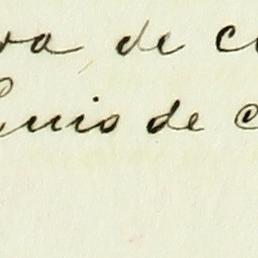 va de c
Luis de c